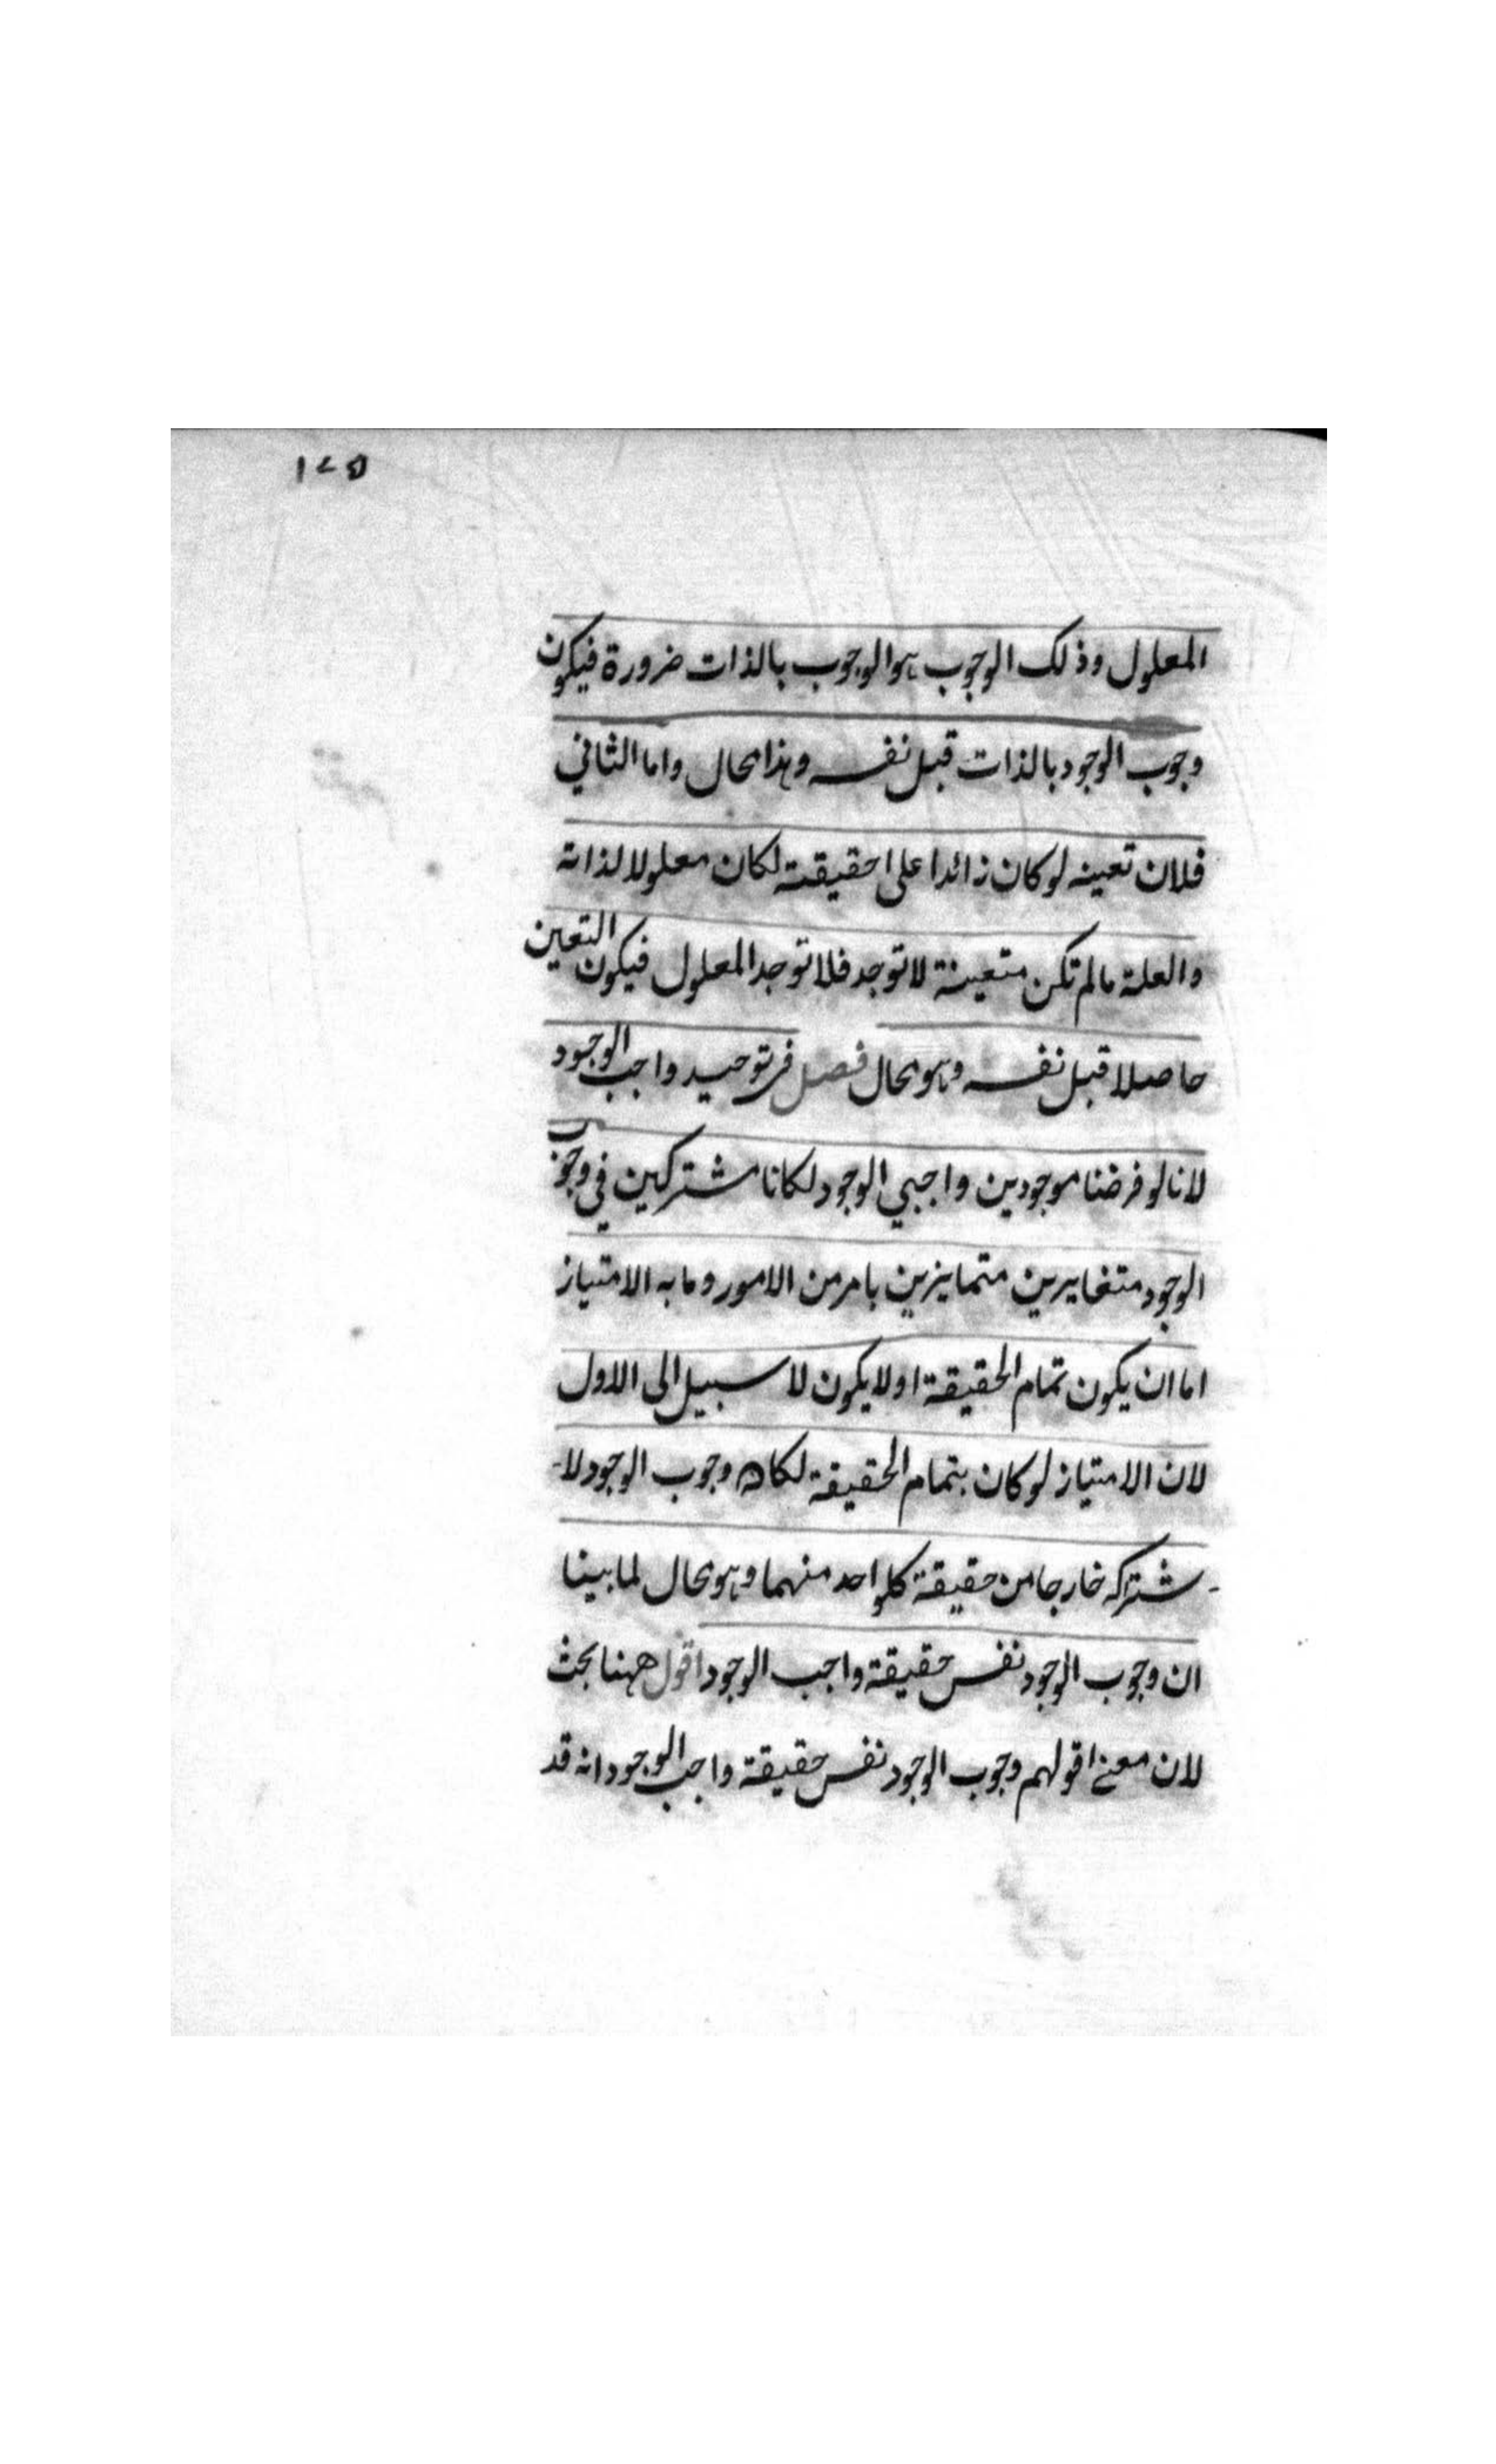 ١٧٥
المعلول وذلك الوجوب هو الوجوب بالذات ضرورة فيكون
وجوب الوجود بالذات قبل نفسه وهذا محال واما الثاني
فلان تعينه لو كان زائدا على حقيقته لكان معلولا لذاته
والعلة ما لم تكن متعينة لا توجد فلا توجد المعلول فيكون التعين
حاصلا قبل نفسه وهو محال فصل في توحيد واجب الوجود
لانا لو فرضنا موجودين واجبي الوجود لكانا مشتركين في وجوب
الوجود متغايرين متمايزين بامر من الامور وما به الامتياز
اما ان يكون تمام الحقيقة او لا يكون لا سبيل الى الاول
لان الامتياز لو كان بتمام الحقيقة لكان وجوب الوجود لا-
-شتراكه خارجا من حقيقة كلواحد منهما وهو محال لما بينا
ان وجوب الوجود نفس حقيقة واجب الوجود اقول ههنا بحث
لان معنى قولهم وجوب الوجود نفس حقيقة واجب الوجود انه قد